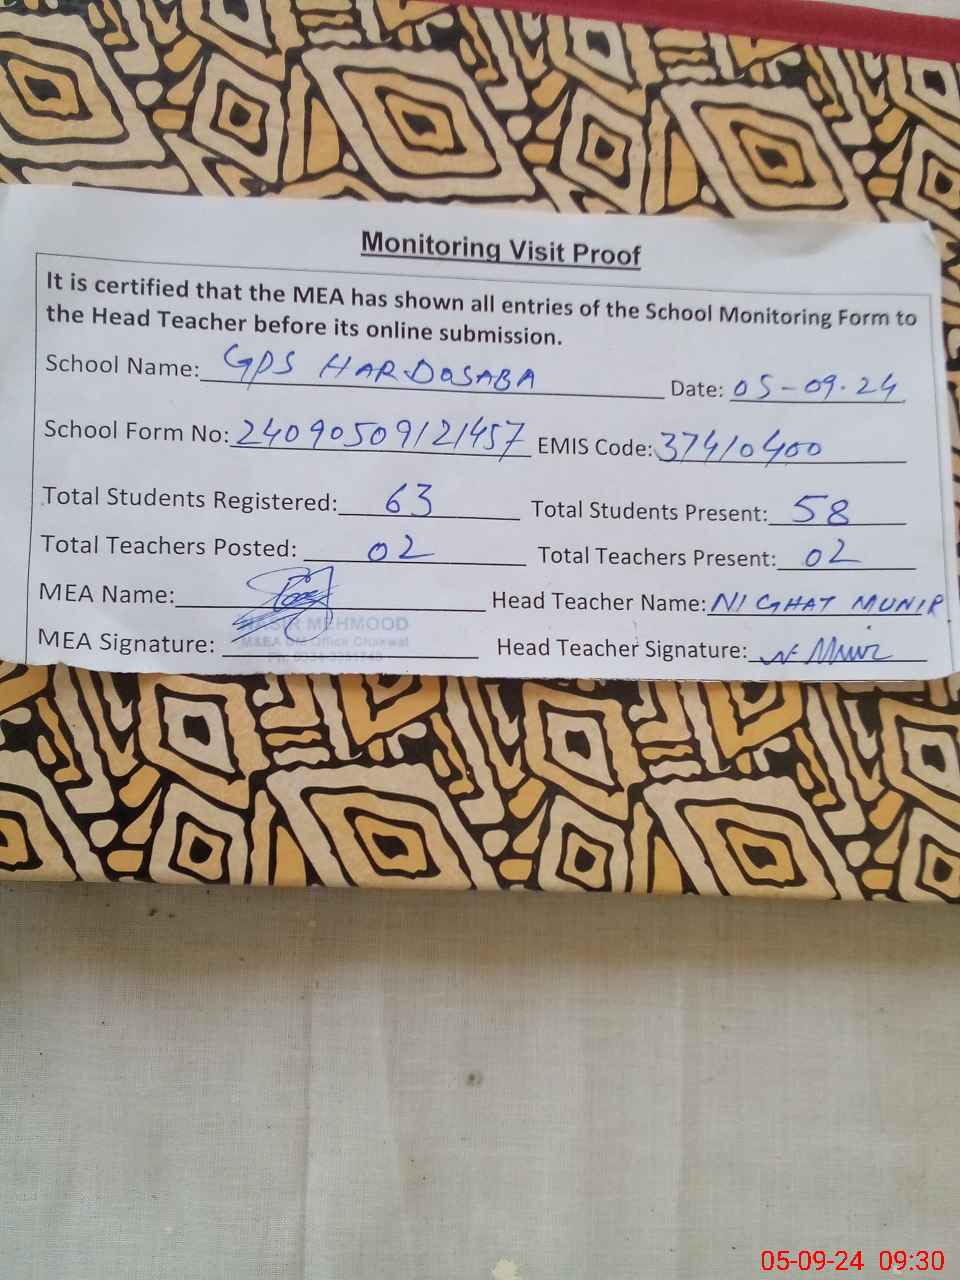 Monitoring Visit Proof
It is certified that the MEA has shown all entries of the School Monitoring Form to
the Head Teacher before its online submission.
School Name: GPS HARDOSABA Date: 05-09-24
School Form No: 24090509121457 EMIS Code: 37410400
Total Students Registered: 63 Total Students Present: 58
Total Teachers Posted: 02 Total Teachers Present: 02
MEA Name: Head Teacher Name: NIGHAT MUNIR
NASIR MEHMOOD
MEA Signature: M&EA DM Office Chakwal Head Teacher Signature: N Munir
05-09-24 09:30